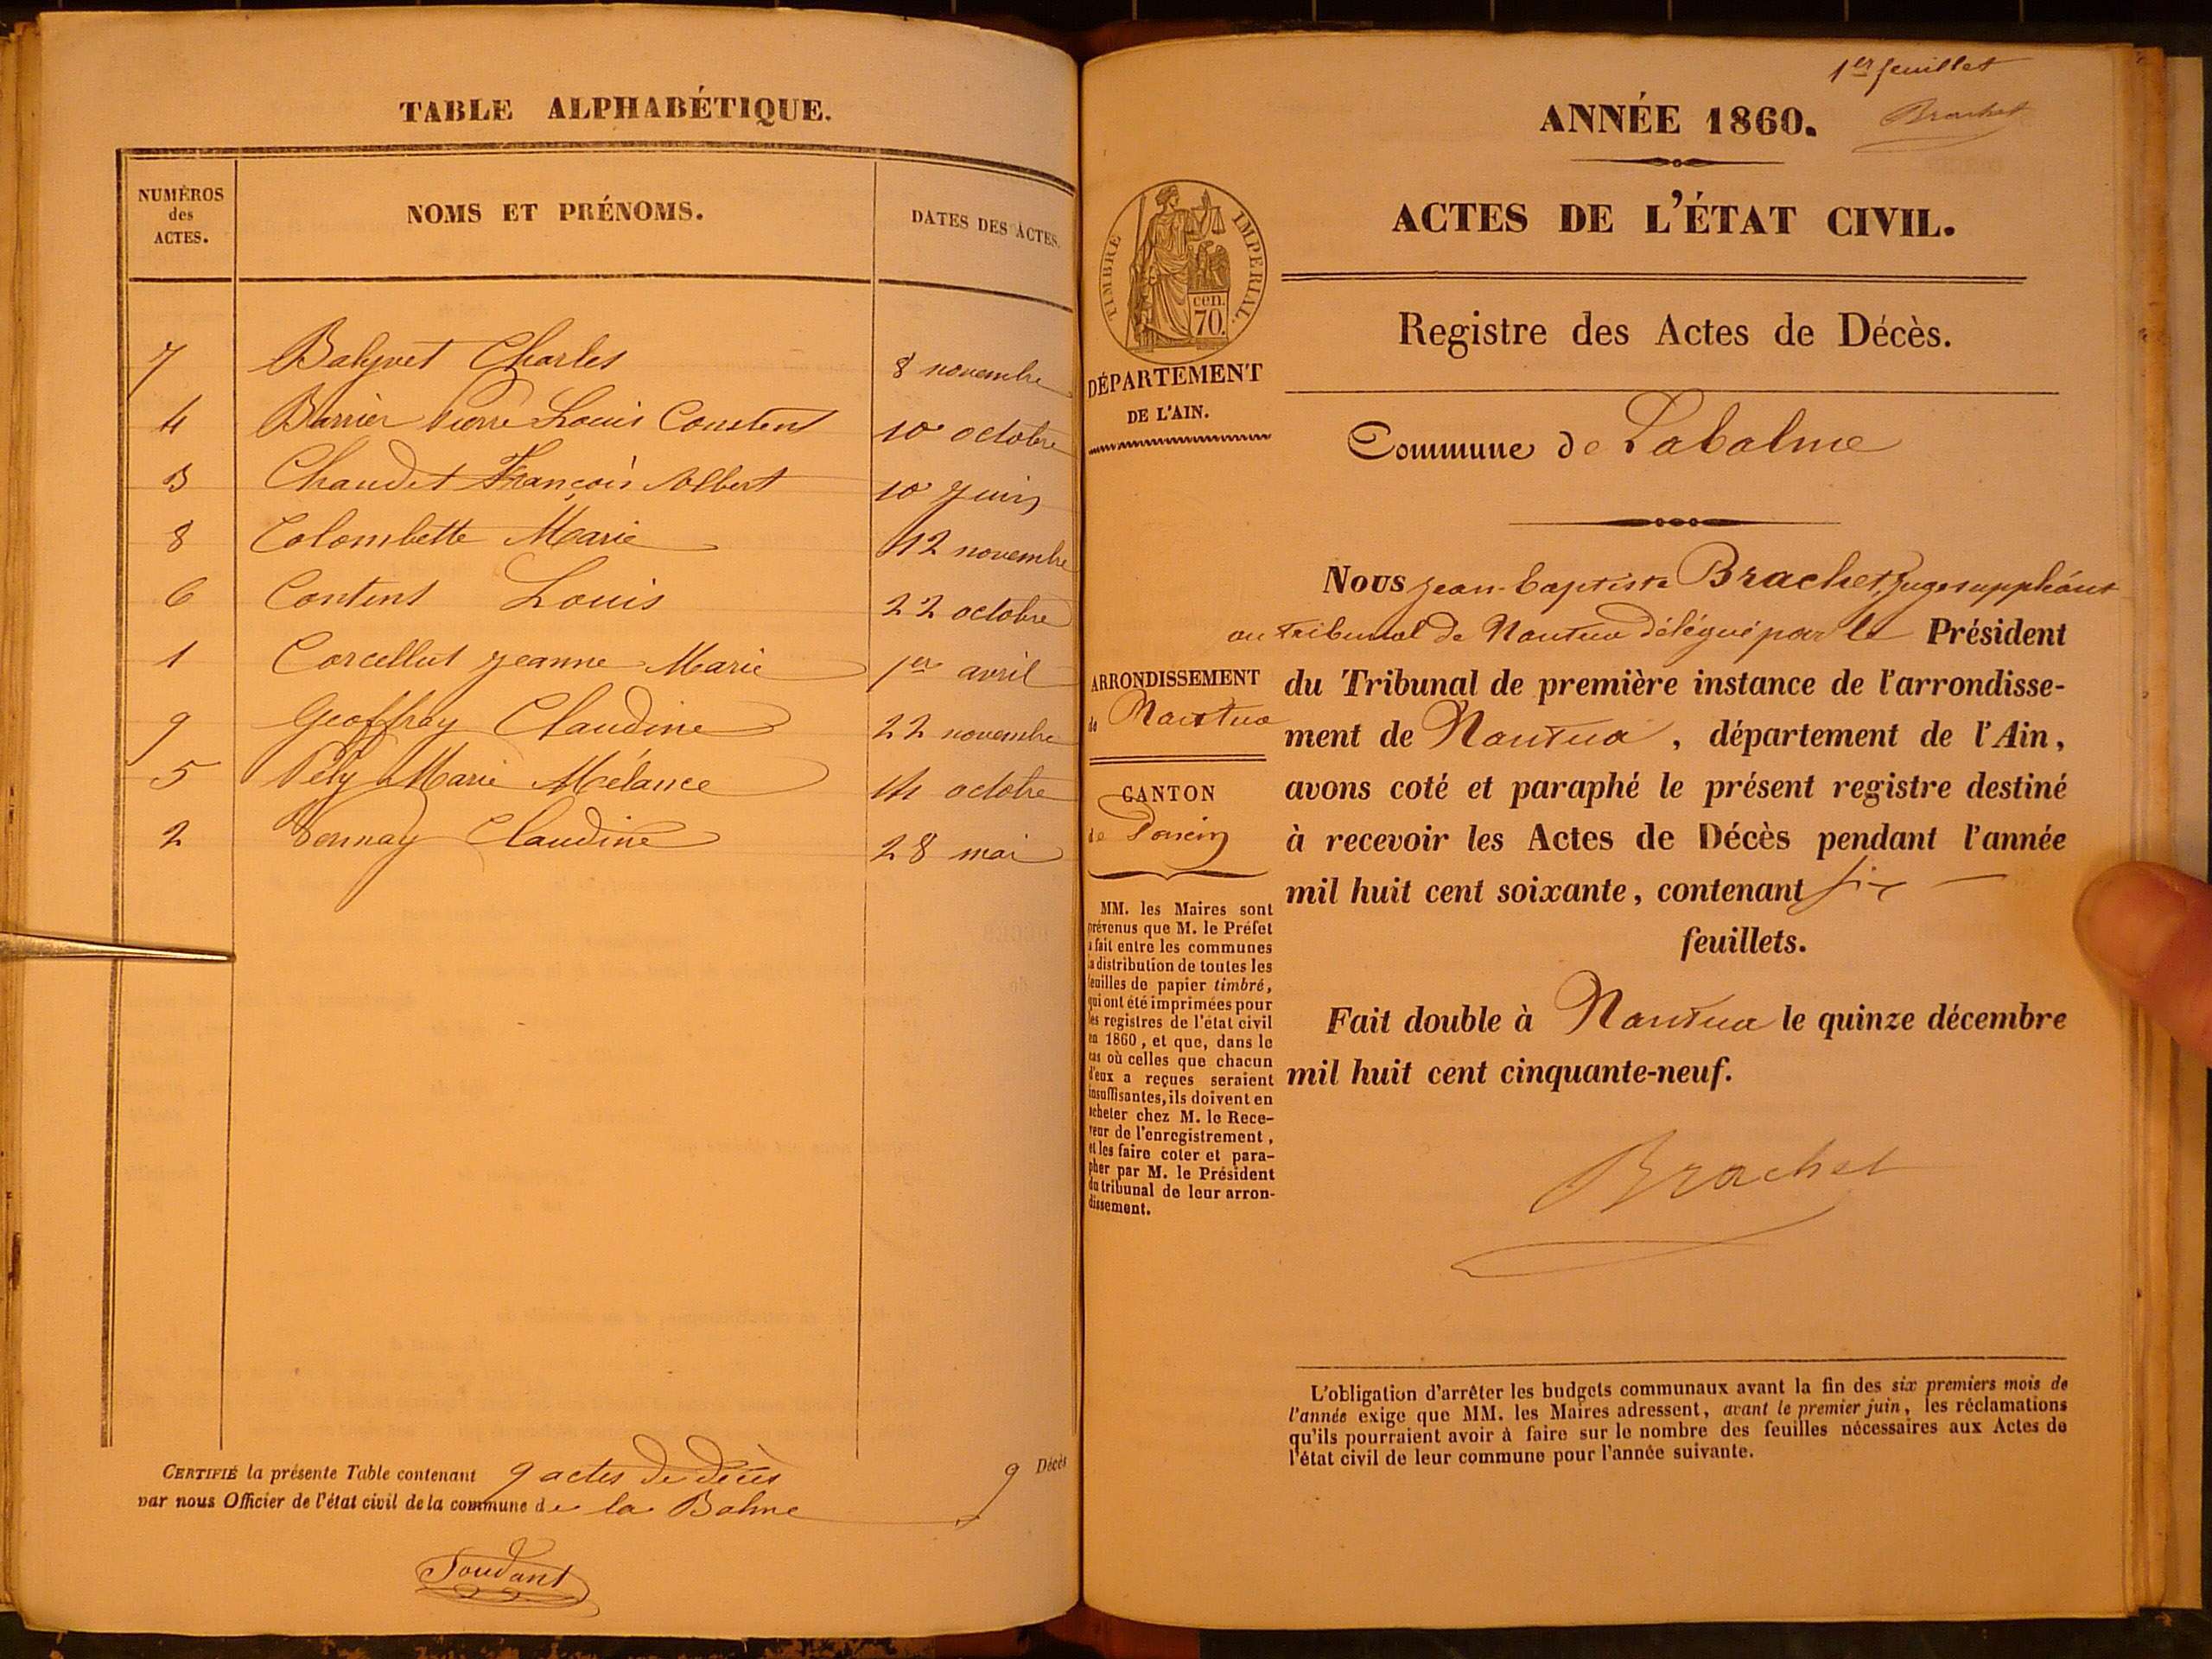 TABLE ALPHABÉTIQUE.
NUMÉROS
des
ACTES.
NOMS ET PRÉNOMS.
DATES DES ACTES.
7 Balyvet Charles 8 novembre
4 Barrier Pierre Louis Constent 10 octobre
3 Chaudet François Albert 10 juin
8 Colombette Marie 12 novembre
6 Contens Louis 22 octobre
1 Corcellut jeanne Marie 1er avril
9 Geoffray Claudine 22 novembre
5 Pély Marie Mélance 14 octobre
2 Vernay Claudine 28 mai
CERTIFIÉ la présente Table contenant 9 actes de décès 9 Décès
par nous Officier de l'état civil de la commune de la Balme
Soudant
1er feuillet
Brachet
ANNÉE 1860.
ACTES DE L'ÉTAT CIVIL.
TIMBRE IMPERIAL.
cen.
70.
DÉPARTEMENT
DE L'AIN.
Registre des Actes de Décès.
Commune de Labalme
Nous jean-baptiste Brachet, juge suppléant
au tribunal de Nantua délégué par le Président
du Tribunal de première instance de l'arrondisse-
ment de Nantua, département de l'Ain,
avons coté et paraphé le présent registre destiné
à recevoir les Actes de Décès pendant l'année
mil huit cent soixante, contenant six
feuillets.
Fait double à Nantua le quinze décembre
mil huit cent cinquante-neuf.
Brachet
ARRONDISSEMENT
de Nantua
CANTON
de Poncin
MM. les Maires sont
prévenus que M. le Préfet
a fait entre les communes
la distribution de toutes les
feuilles de papier timbré,
qui ont été imprimées pour
les registres de l'état civil
en 1860, et que, dans le
cas où celles que chacun
d'eux a reçues seraient
insuffisantes, ils doivent en
acheter chez M. le Rece-
veur de l'enregistrement,
et les faire coter et para-
pher par M. le Président
du tribunal de leur arron-
dissement.
L'obligation d'arrêter les budgets communaux avant la fin des six premiers mois de
l'année exige que MM. les Maires adressent, avant le premier juin, les réclamations
qu'ils pourraient avoir à faire sur le nombre des feuilles nécessaires aux Actes de
l'état civil de leur commune pour l'année suivante.